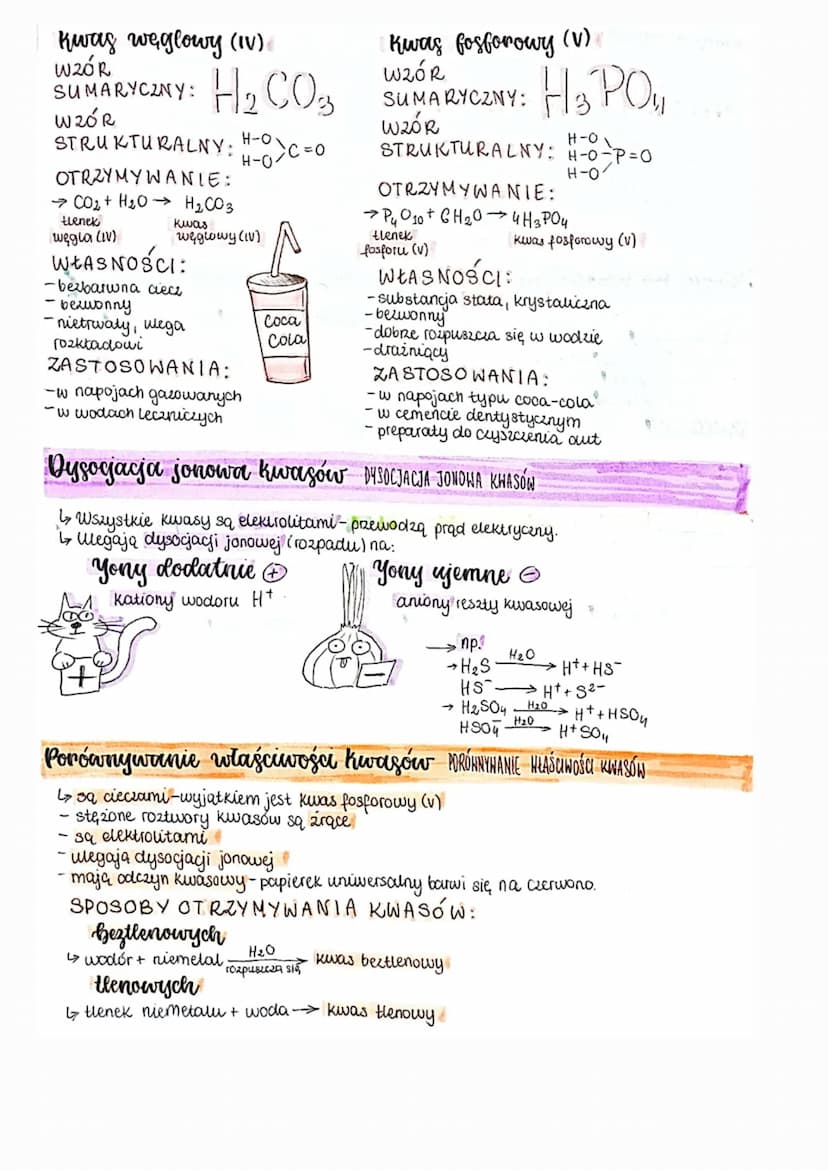 Kwas węglowy (IV)
WZÓR
SUMARYCZNY: H₂CO₃
WZÓR
STRUKTURALNY: H-O
H-O C=O
OTRZYMYWANIE:
→ CO₂ + H₂O → H₂CO₃
tlenek węgla (IV)
kwas węglowy (IV)
WŁASNOŚCI:
- bezbarwna ciecz
- bezwonny
- nietrwały, ulega
rozkładowi
ZASTOSOWANIA:
- w napojach gazowanych
- w wodach leczniczych
Coca
Cola
Kwas fosforowy (V)
WZÓR
SUMARYCZNY: H₃PO₄
WZÓR
STRUKTURALNY: H-O
H-O-P=O
H-O
OTRZYMYWANIE:
→ P₄O₁₀ + 6H₂O → 4H₃PO₄
tlenek fosforu (V)
kwas fosforowy (V)
WŁASNOŚCI:
- substancja stała, krystaliczna
- bezwonny
- dobrze rozpuszcza się w wodzie
- drażniący
ZASTOSOWANIA:
- w napojach typu coca-cola
- w cemencie dentystycznym
- preparaty do czyszczenia aut
Dysocjacja jonowa kwasów DYSOCJACJA JONOWA KWASÓW
↳ Wszystkie kwasy są elektrolitami - przewodzą prąd elektryczny.
↳ Ulegają dysocjacji jonowej (rozpadu) na:
Yony dodatnie ⊕
kationy wodoru H⁺
+
Yony ujemne ⊖
aniony reszty kwasowej
-
→ np.:
→ H₂S —H₂O→ H⁺ + HS⁻
HS⁻ → H⁺ + S²⁻
→ H₂SO₄ —H₂O→ H⁺ + HSO₄
HSO₄⁻ —H₂O→ H⁺ SO₄
Porównywanie właściwości kwasów PORÓWNYWANIE WŁAŚCIWOŚCI KWASÓW
↳ są cieczami - wyjątkiem jest kwas fosforowy (V)
- stężone roztwory kwasów są żrące
- są elektrolitami
- ulegają dysocjacji jonowej
- mają odczyn kwasowy - papierek uniwersalny barwi się na czerwono.
SPOSOBY OTRZYMYWANIA KWASÓW:
beztlenowych
↳ wodór + niemetal —H₂O rozpuszcza się→ kwas beztlenowy
tlenowych
↳ tlenek niemetalu + woda → kwas tlenowy